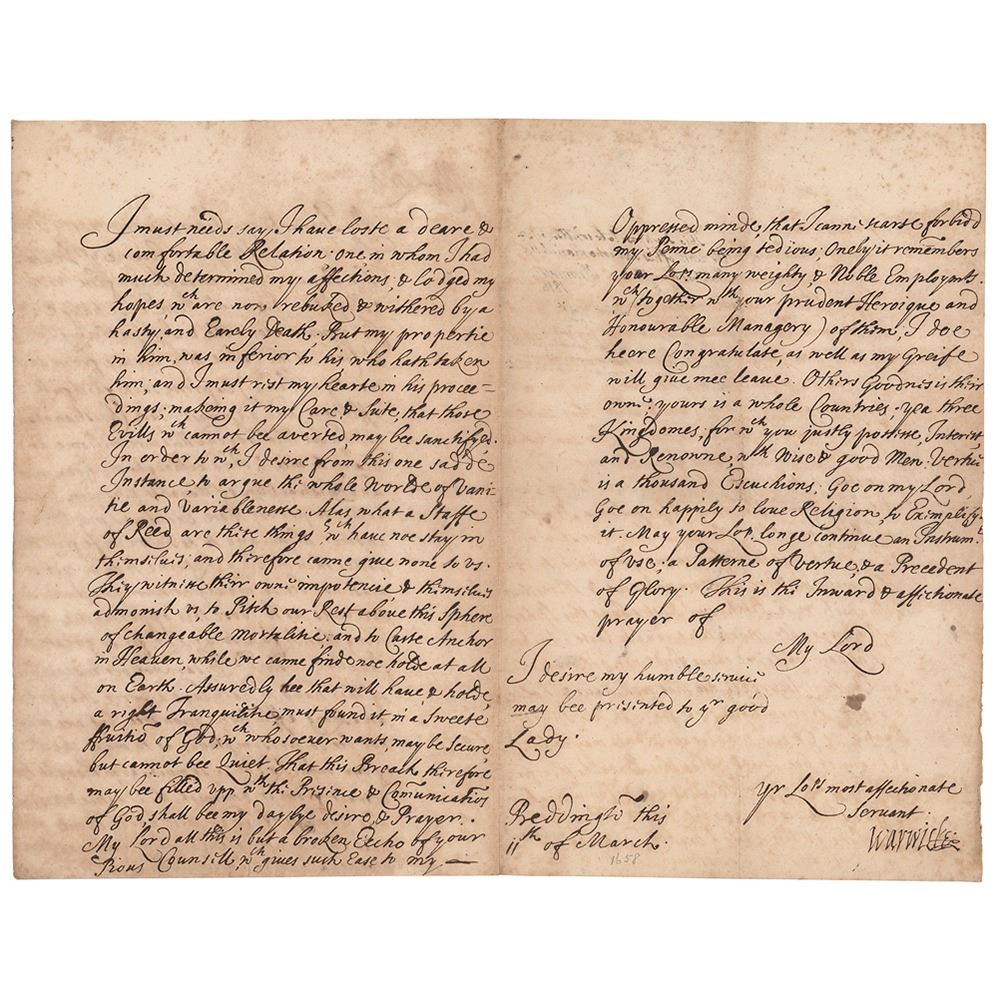 I must needs say, I have loste a deare &
comfortable Relation: one in whom I had
much determined my affections, & lodged my
hopes, wch are now rebuked & withered by a
hasty and Early Death. But my propertie
in him, was inferior to his who hath taken
him; and I must rest my hearte in his procee=
dings; makeing it my Care & Sute, that those
Evills wch cannot bee averted, may bee sanctifyed.
In order to wch, I desire from this one sadde
Instance, to argue the whole Worlde of Vani-
tie and Variablenesse. Alas what a Staffe
of Reed are these things wch have noe stay in
themselves; and therefore canne give none to us.
They witnesse their owne impotencie & themselves
admonish us, to Pitch our Rest above this Sphere
of changeable Mortalitie: and to Caste Anchor
in Heaven, while we canne finde noe holde at all
on Earth. Assuredly hee that will have, & holde,
a right Tranquilitie, must found it, in a Sweete
ffruitio of God; wch whosoever wants, may be Secure
but cannot bee Quiet. That this Breach therefore
may bee filled upp wth the Presence & Comunicatio
of God shall bee my daylye desire, & Prayer.
My Lord all this is but a broken Eecho of your
Pious Counsill, wch gives such Ease to my
Oppressed minde, that I cann scarse forbidd
my Penne being tedious; Onely it remembers
your Lops many weighty & Noble Employmts.
wch (together wth your prudent Heroique and
Honourable Managery) of them, I doe
heere Congratulate, as well as my Greife
will give mee leave. Others Goodnes is their
owne: yours is a whole Countries, yea three
Kingdomes, for wch you justly possesse, Interest
and Renowne, wth Wise & good Men. Vertue
is a thousand Escuchions. Goe on my Lord,
Goe on happily to love Religion, to Exemplify
it. May your Lop. longe continue an Instrumt
of use: a Patterne of Vertue, & a Precedent
of Glory. This is the Inward & affectionate
prayer of
My Lord
I desire my humble service
may bee presented to yr good
Lady.
yr Lops most affectionate
Servant
Warwicke
Breddingto this
11th of March.
1658